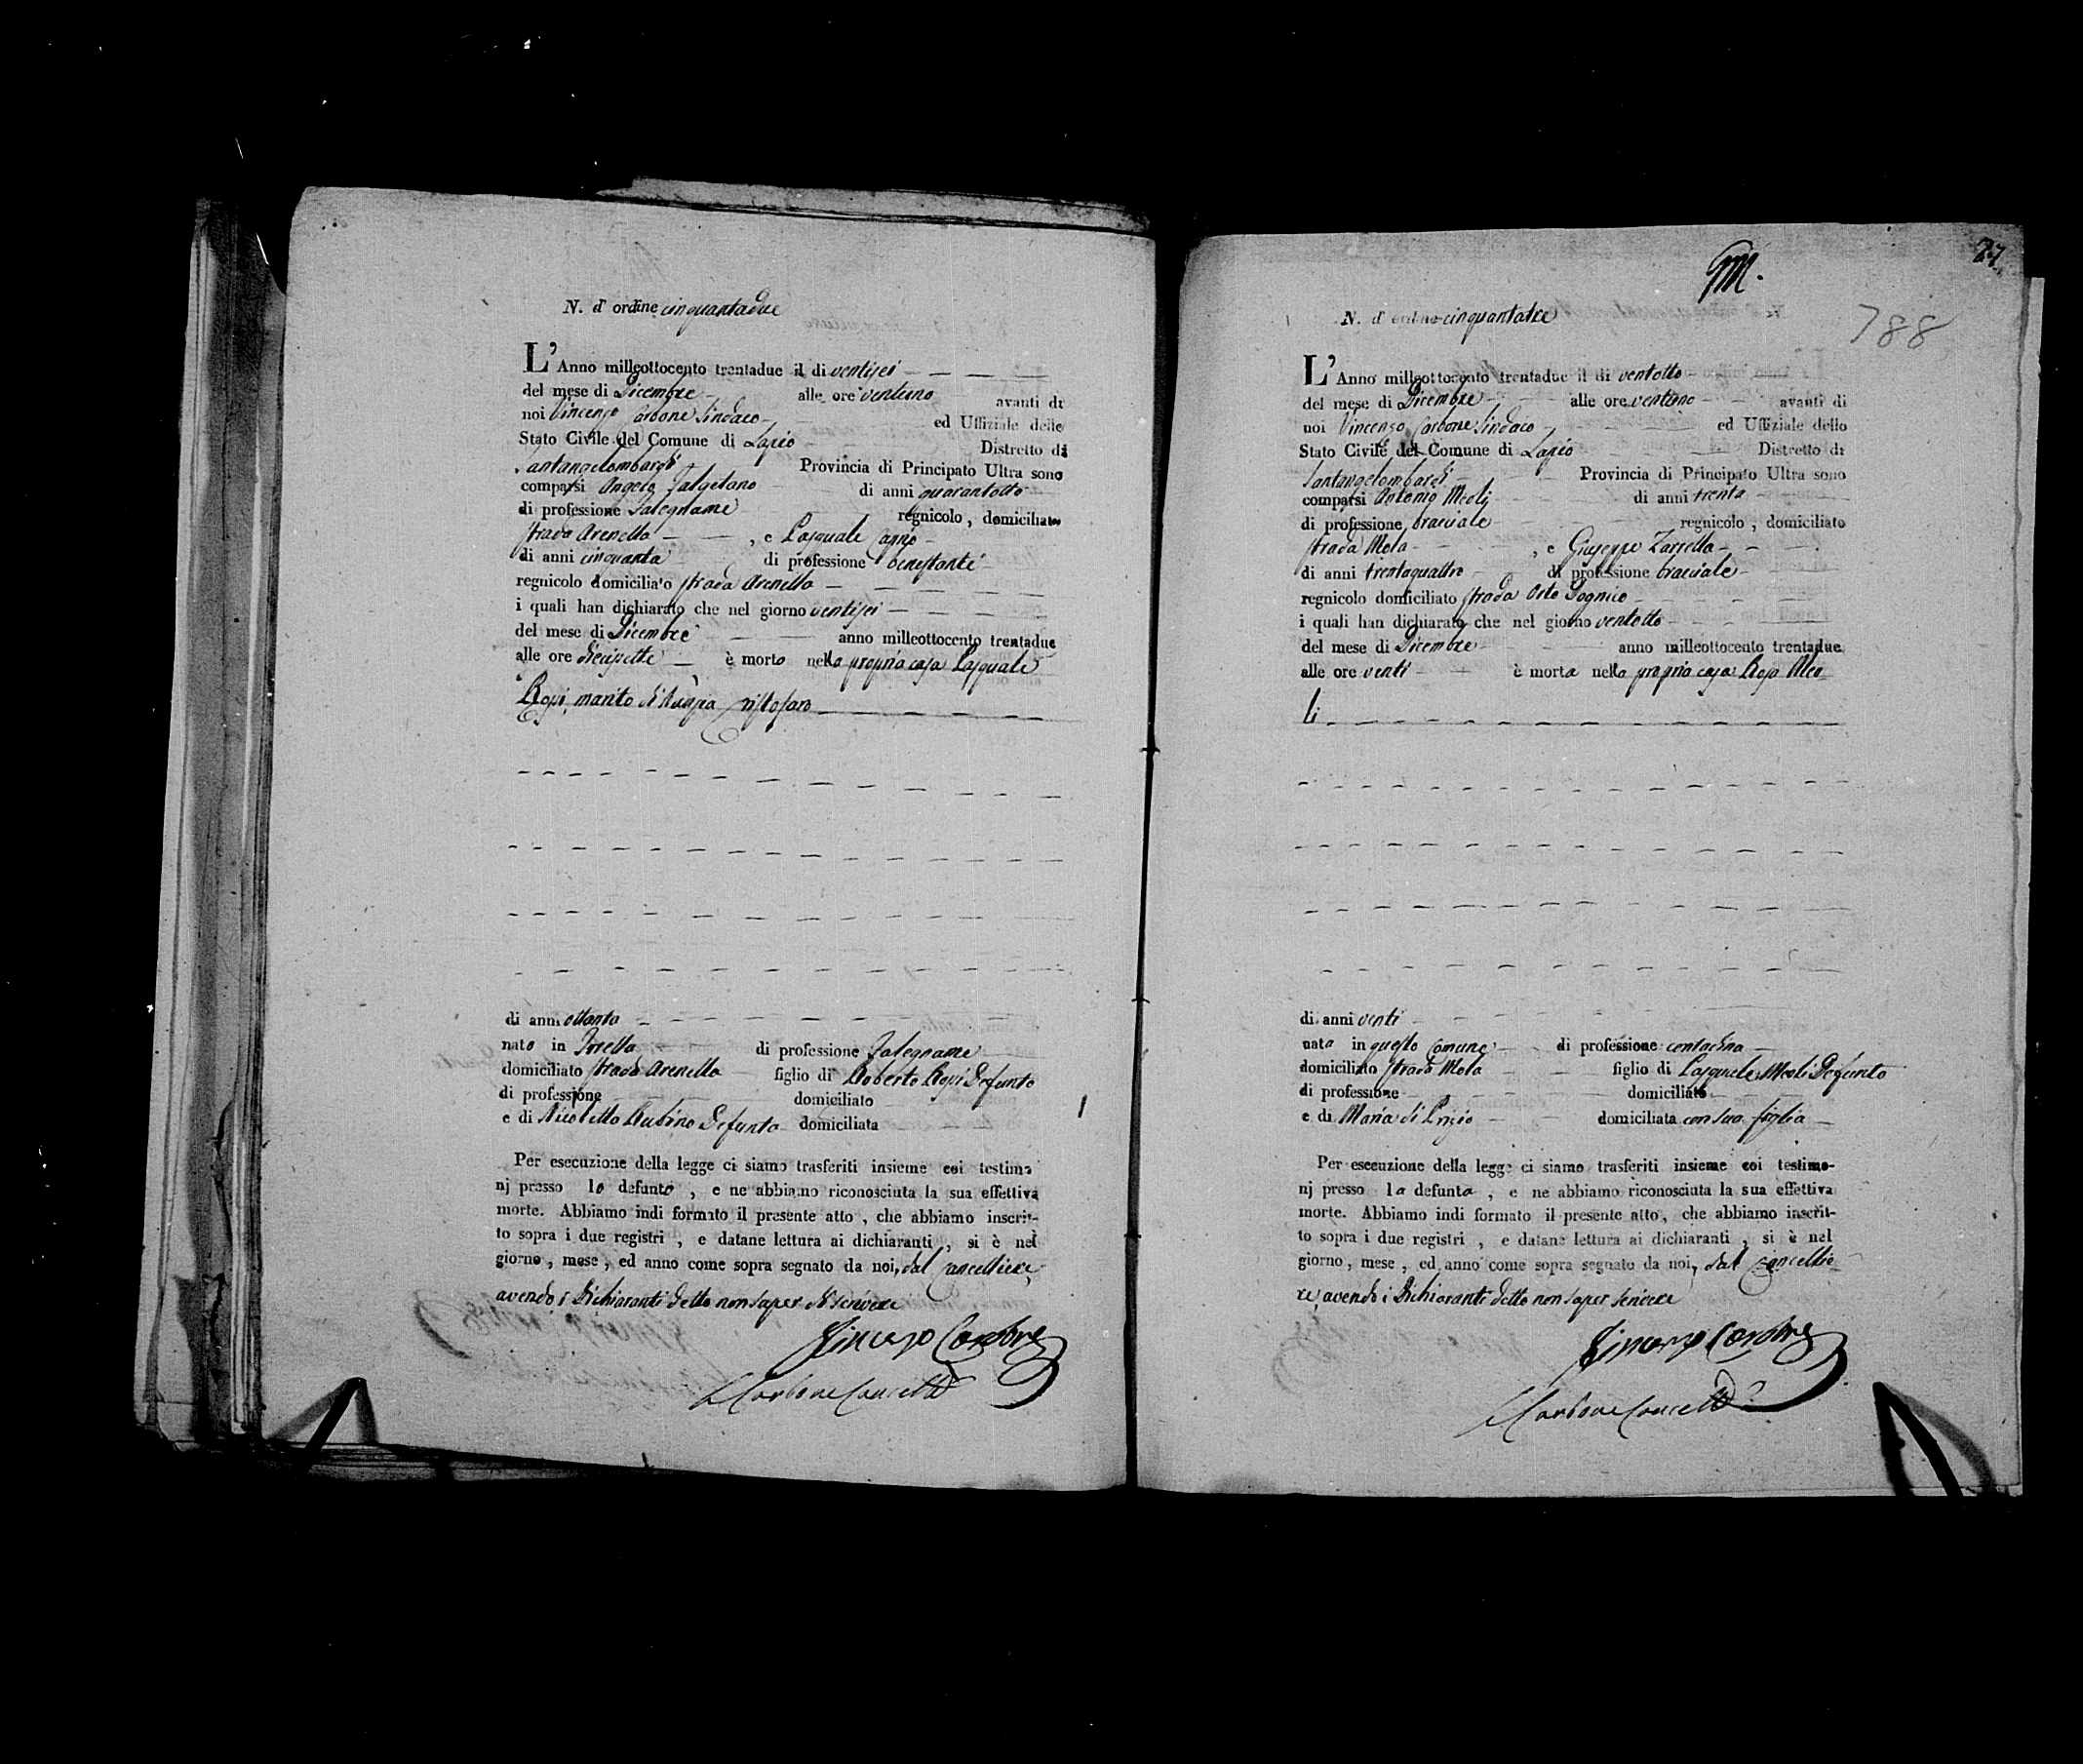 N. d' ordine cinquantadue
L'Anno milleottocento trentadue il di ventisei
del mese di Dicembre alle ore ventuno avanti di
noi Vincenzo Carbone Sindaco ed Uffiziale dello
Stato Civile del Comune di Lapio Distretto di
Santangelombardi Provincia di Principato Ultra sono
comparsi Angelo Falgetano di anni quarantotto
di professione Falegname regnicolo, domiciliato
strada Arenella, e Pasquale
di anni cinquanta di professione benestante
regnicolo domiciliato strada Arenella
i quali han dichiarato che nel giorno ventisei
del mese di Dicembre anno milleottocento trentadue
alle ore diecisette è morto nella propria casa Pasquale
marito di Cristofaro
di anni ottanta
nato in Torella di professione Falegname
domiciliato strada Arenella figlio di Roberto Defunto
di professione domiciliato
e di Nicoletta Rubino Defunta domiciliata
Per esecuzione della legge ci siamo trasferiti insieme coi testimo
nj presso lo defunto, e ne abbiamo riconosciuta la sua effettiva
morte. Abbiamo indi formato il presente atto, che abbiamo inscrit-
to sopra i due registri, e datane lettura ai dichiaranti, si è nel
giorno, mese, ed anno come sopra segnato da noi, dal Cancelliere,
avendo i Dichiaranti detto non saper di scrivere
Vincenzo Carbone
Carbone Cancell
27
M.
788
N. d' ordine cinquantatre
L'Anno milleottocento trentadue il di ventotto
del mese di Dicembre alle ore ventuno avanti di
noi Vincenzo Carbone Sindaco ed Uffiziale dello
Stato Civile del Comune di Lapio Distretto di
Santangelombardi Provincia di Principato Ultra sono
comparsi Antonio Meoli di anni trenta
di professione bracciale regnicolo, domiciliato
strada Mola, e Giuseppe Zarrella
di anni trentaquattro di professione bracciale
regnicolo domiciliato strada Orto
i quali han dichiarato che nel giorno ventotto
del mese di Dicembre anno milleottocento trentadue
alle ore venti è morta nella propria casa Rosa Meo
li
di anni venti
nata in questo Comune di professione contadina
domiciliato strada Mola figlio di Pasquale Meoli Defunto
di professione domiciliato
e di Maria di Prizio domiciliata con sua figlia
Per esecuzione della legge ci siamo trasferiti insieme coi testimo-
nj presso la defunta, e ne abbiamo riconosciuta la sua effettiva
morte. Abbiamo indi formato il presente atto, che abbiamo inscrit-
to sopra i due registri, e datane lettura ai dichiaranti, si è nel
giorno, mese, ed anno come sopra segnato da noi, dal Cancellie
re, avendo i Dichiaranti detto non saper scrivere
Vincenzo Carbone
Carbone Cancell